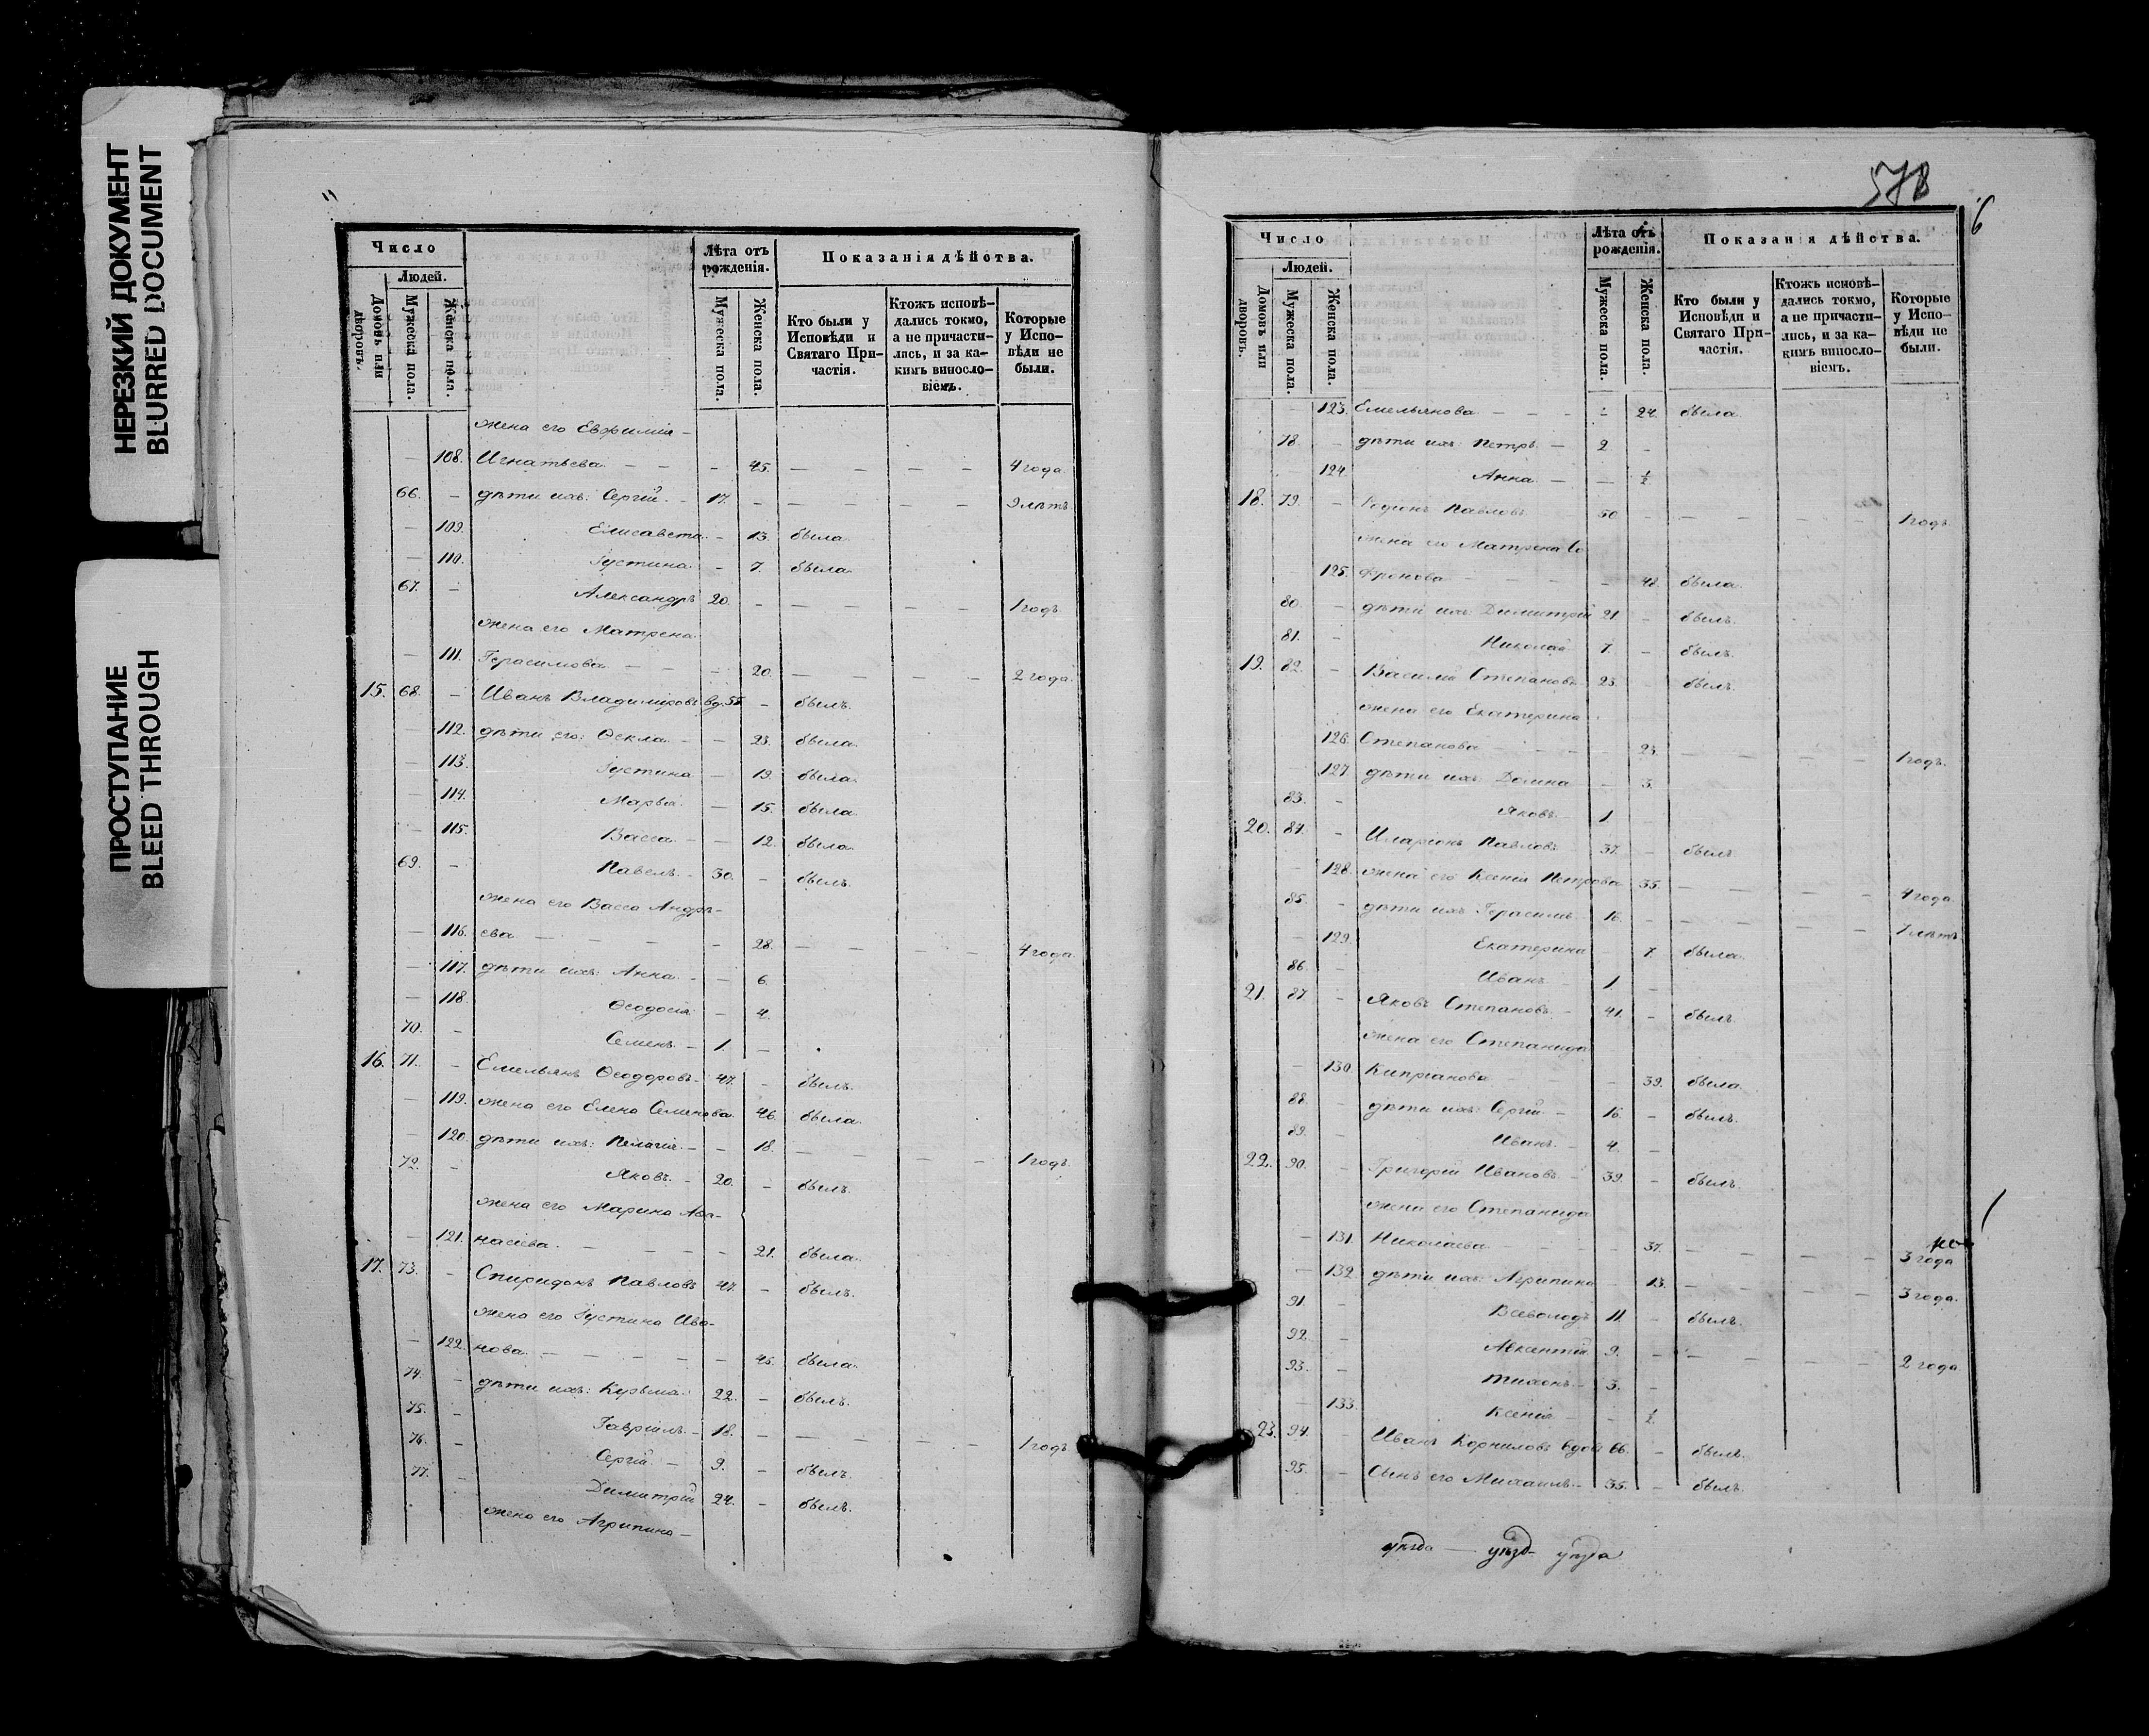 НЕРЕЗКИЙ ДОКУМЕНТ
BLURRED DOCUMENT
ПРОСТУПАНИЕ
BLEED THROUGH
Число
Людей.
Домовъ или дворовъ.
Мужеска пола.
Женска пола.
Лѣта отъ рожденія.
Мужеска пола.
Женска пола.
Показанія дѣйства.
Кто были у Исповѣди и Святаго Причастія.
Ктожъ исповѣдались токмо, а не причастились, и за какимъ винословіемъ.
Которые у Исповѣди не были.
жена его Евфимія –
– 108. Игнатьева – – – 45. – – – – 4 года
66. – дѣти ихъ: Сергій – 17. – – – – – 9 лѣтъ
– 109. Елисавета – 13. была
– 110. Іустина – 7. была
67. – Александръ 20. – – – – – 1 годъ
жена его Матрена
– 111. Герасимова – – – 20. – – – – 2 года
15. 68. – Иванъ Владиміровъ вд. 55. – былъ.
– 112. дѣти его: Ѳекла – – 23. была
– 113. Іустина – 19. была
– 114. Марья – 15. была
– 115. Васса – – 12. была
69. – Павелъ – 30. – былъ.
жена его Васса Андре-
– 116. ева – – – – 28. – – – 4 года
– 117. дѣти ихъ: Анна – – 6.
– 118. Ѳеодосія – 4.
70. – Семенъ – 1. –
16. 71. – Емельянъ Ѳеодоровъ – 47. – былъ.
– 119. жена его Елена Семенова 46. была
– 120. дѣти ихъ: Пелагія – – 18. – – – – 1 годъ
72. – Яковъ – 20. – былъ.
жена его Марина Аѳа-
– 121. насіева – – – – 21. была
17. 73. – Спиридонъ Павловъ 47. – былъ.
жена его Іустина Ива-
– 122. нова – – – – – 45. была
74. – дѣти ихъ: Курьма 22. – былъ.
75. – Гавріилъ – 18. – – – – – 1 годъ
76. – Сергій – 9. – былъ.
77. – Димитрій 24. – былъ.
жена его Агрипина –
578
6
Число
Людей.
Домовъ или дворовъ.
Мужеска пола.
Женска пола.
Лѣта отъ рожденія.
Мужеска пола.
Женска пола.
Показанія дѣйства.
Кто были у Исповѣди и Святаго Причастія.
Ктожъ исповѣдались токмо, а не причастились, и за какимъ винословіемъ.
Которые у Исповѣди не были.
– 123. Емельянова – – – – 24. была
78. – дѣти ихъ: Петръ – 2 –
124. Анна – – ½
18. 79. – Родіонъ Павловъ 50 – – – – 1 годъ
жена его Матрена Со
– 125. фронова – – 48. была
80. – дѣти ихъ: Димитрій 21. – былъ.
81. – Николай 7. – былъ.
19. 82. – Василій Степановъ 25. – былъ.
жена его Екатерина
126. Степанова – – – 23. – – – 1 годъ.
– 127 дѣти ихъ: Домна – 3.
83. – Яковъ – 1 –
20. 84. – Иларіонъ Павловъ 37. – былъ.
– 128. жена его Ксенія Петрова 35. – – – – 4 года
85. – дѣти ихъ Герасимъ 16. – – – – – 7 лѣтъ
– 129. Екатерина – 7. была
86. – Иванъ – 1. –
21. 87. – Яковъ Степановъ – 41. – былъ.
жена его Степанида
– 130. Кипріанова – – 39. была
88. – дѣти ихъ: Сергій – 16. – былъ.
89. – Иванъ – 4. –
22. 90. – Григорій Ивановъ – 39. – былъ.
жена его Степанида
– 131. Николаева – – 37. – – – – 3 года
– 132 дѣти ихъ: Агрипина – 13. – – – – 3 года.
91. – Всеволодъ 11. – былъ.
92. – Авксентій 9. – – – – – 2 года
93. – Тихонъ – 3. –
– 133. Ксенія – – ½.
23. 94. Иванъ Корниловъ вдов 66. – былъ.
95. – Сынъ его Михаилъ – 35. – былъ.
уѣзда — уѣзд- уѣзда